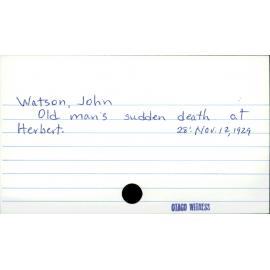 Watson, John
Old man's sudden death at
Herbert. 28: Nov. 12, 1929
OTAGO WITNESS